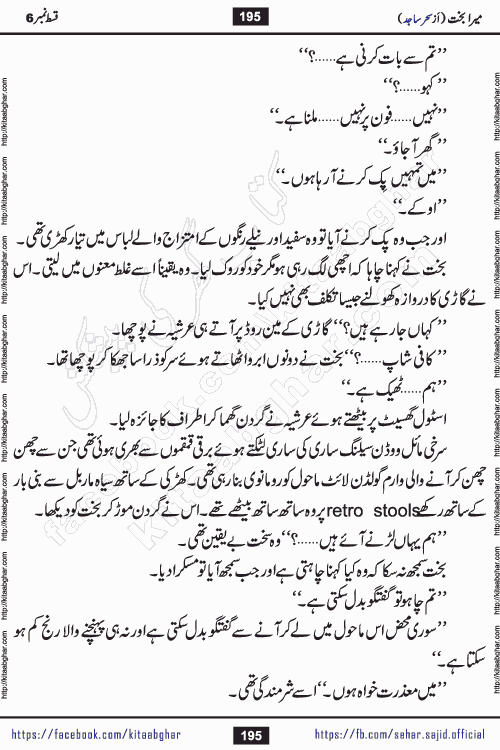 میرا بخت (از سحر ساجد) 195 قسط نمبر 6
’’تم سے بات کرنی ہے......؟‘‘
’’کہو......؟‘‘
’’نہیں......فون پر نہیں......ملنا ہے۔‘‘
’’گھر آ جاؤ۔‘‘
’’میں تمہیں پِک کرنے آ رہا ہوں۔‘‘
’’اوکے۔‘‘
اور جب وہ پِک کرنے آیا تو وہ سفید اور نیلے رنگوں کے امتزاج والے لباس میں تیار کھڑی تھی۔
بخت نے کہنا چاہا کہ اچھی لگ رہی ہو مگر خود کو روک لیا۔ وہ یقیناً اسے غلط معنوں میں لیتی۔ اس
نے گاڑی کا دروازہ کھولنے جیسا تکلف بھی نہیں کیا۔
’’کہاں جا رہے ہیں؟‘‘ گاڑی کے مین روڈ پر آتے ہی عرشیہ نے پوچھا۔
’’کافی شاپ......؟‘‘ بخت نے دونوں ابرو اٹھاتے ہوئے سر کو ذرا سا جھکا کر پوچھا تھا۔
’’ہم......ٹھیک ہے۔‘‘
اسٹول گھسیٹ پر بیٹھتے ہوئے عرشیہ نے گردن گھما کر اطراف کا جائزہ لیا۔
سرخی مائل ووڈن سیلنگ ساری کی ساری لٹکتے ہوئے برقی قمقموں سے بھری ہوئی تھی جن سے چھن
چھن کر آنے والی وارم گولڈن لائٹ ماحول کو رومانوی بنا رہی تھی۔ کھڑکی کے ساتھ سیاہ ماربل سے بنی بار
کے ساتھ رکھے retro stools پر وہ ساتھ ساتھ بیٹھے تھے۔ اس نے گردن موڑ کر بخت کو دیکھا۔
’’ہم یہاں لڑنے آئے ہیں......؟‘‘ وہ سخت بے یقین تھی۔
بخت سمجھ نہ سکا کہ وہ کیا کہنا چاہتی ہے اور جب سمجھ آیا تو مسکرا دیا۔
’’تم چاہو تو گفتگو بدل سکتی ہے۔‘‘
’’سوری محض اس ماحول میں لے کر آنے سے گفتگو بدل سکتی ہے اور نہ ہی پہنچنے والا رنج کم ہو
سکتا ہے۔‘‘
’’میں معذرت خواہ ہوں۔‘‘ اسے شرمندگی تھی۔
https://facebook.com/kitaabghar 195 https://fb.com/sehar.sajid.official
http://kitaabghar.com